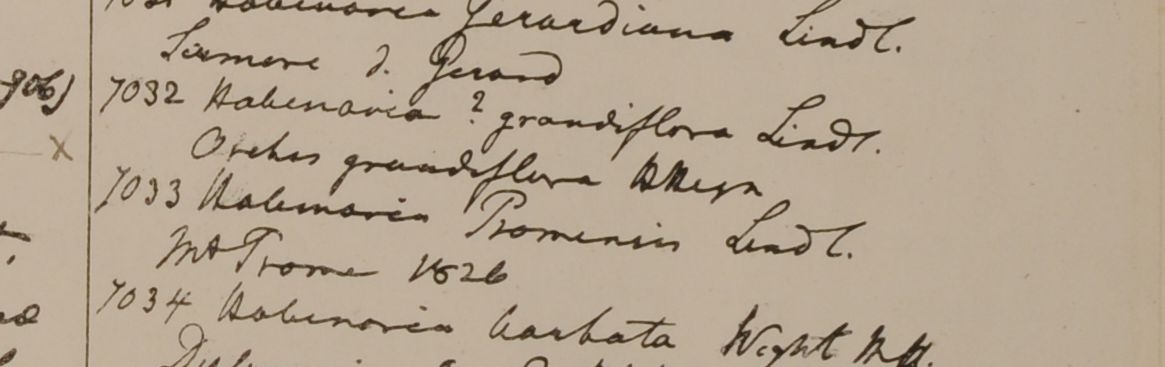 Habenaria Gerardiana Lindl.
Sirmore d. Gerard
906)
7032 Habenaria ? grandiflora Lindl.
x
Orchis grandiflora
7033 Habenaria Promensis Lindl.
Mt Prome 1826
7034 Habenaria barbata Wight